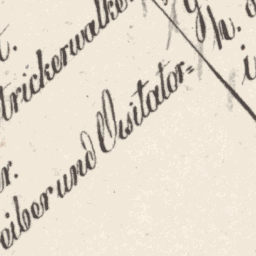 t.
trickerwalke
er.
eiber und Visitator=
h.